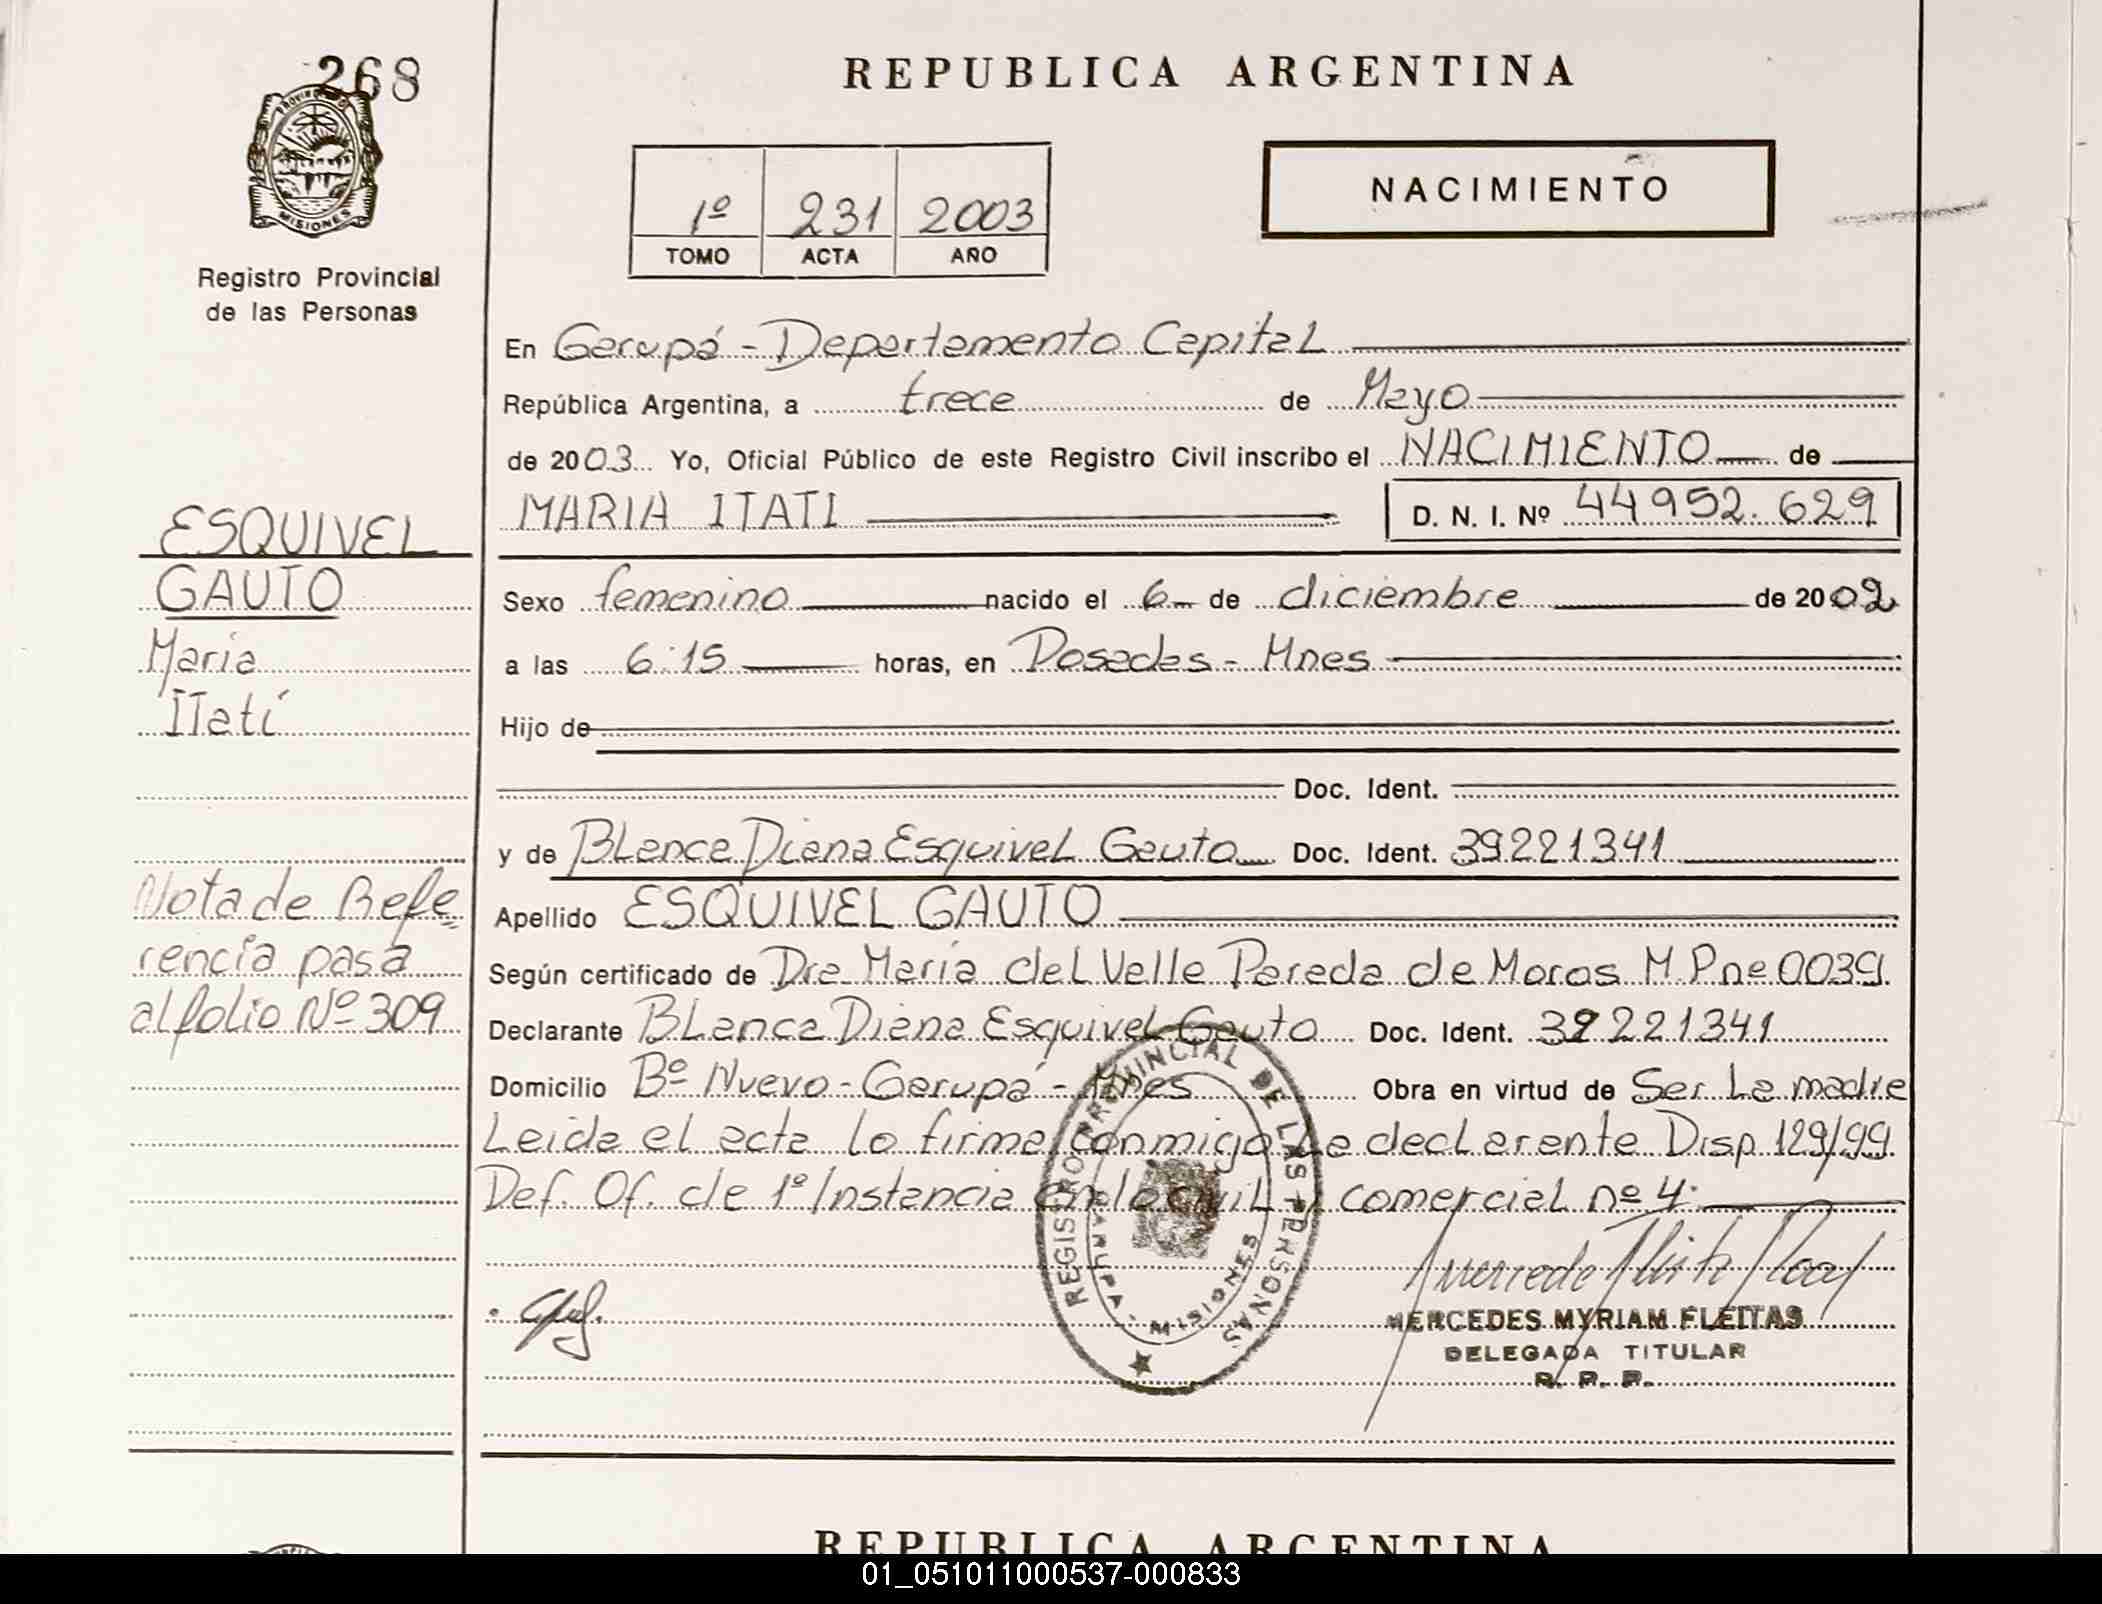 268
PROVINCIA DE
MISIONES
Registro Provincial
de las Personas
REPUBLICA ARGENTINA
1º 231 2003
TOMO ACTA AÑO
NACIMIENTO
En Garupá - Departamento Capital
República Argentina, a trece de Mayo
de 2003 Yo, Oficial Público de este Registro Civil inscribo el NACIMIENTO de
MARIA ITATI D. N. I. Nº 44952.629
Sexo femenino nacido el 6 de diciembre de 2002
a las 6:15 horas, en Posadas - Mnes
Hijo de
Doc. Ident.
y de Blanca Diana Esquivel Gauto Doc. Ident. 39221341
Apellido ESQUIVEL GAUTO
Según certificado de Dra María del Valle Pareda de Moros M.P.nº 0039
Declarante Blanca Diana Esquivel Gauto Doc. Ident. 39221341
Domicilio Bº Nuevo - Garupá - Mnes Obra en virtud de Ser La madre
Leida el acta lo firma conmigo La declarante Disp. 129/99
Def. Of. de 1º Instancia en lo civil y comercial nº 4.
ESQUIVEL
GAUTO
María
Itatí
Nota de Refe
rencia pasa
al folio Nº 309
REGISTRO PROVINCIAL DE LAS PERSONAS
GARUPA - MISIONES
MERCEDES MYRIAM FLEITAS
DELEGADA TITULAR
R. P. P.
REPUBLICA ARGENTINA
01_051011000537-000833